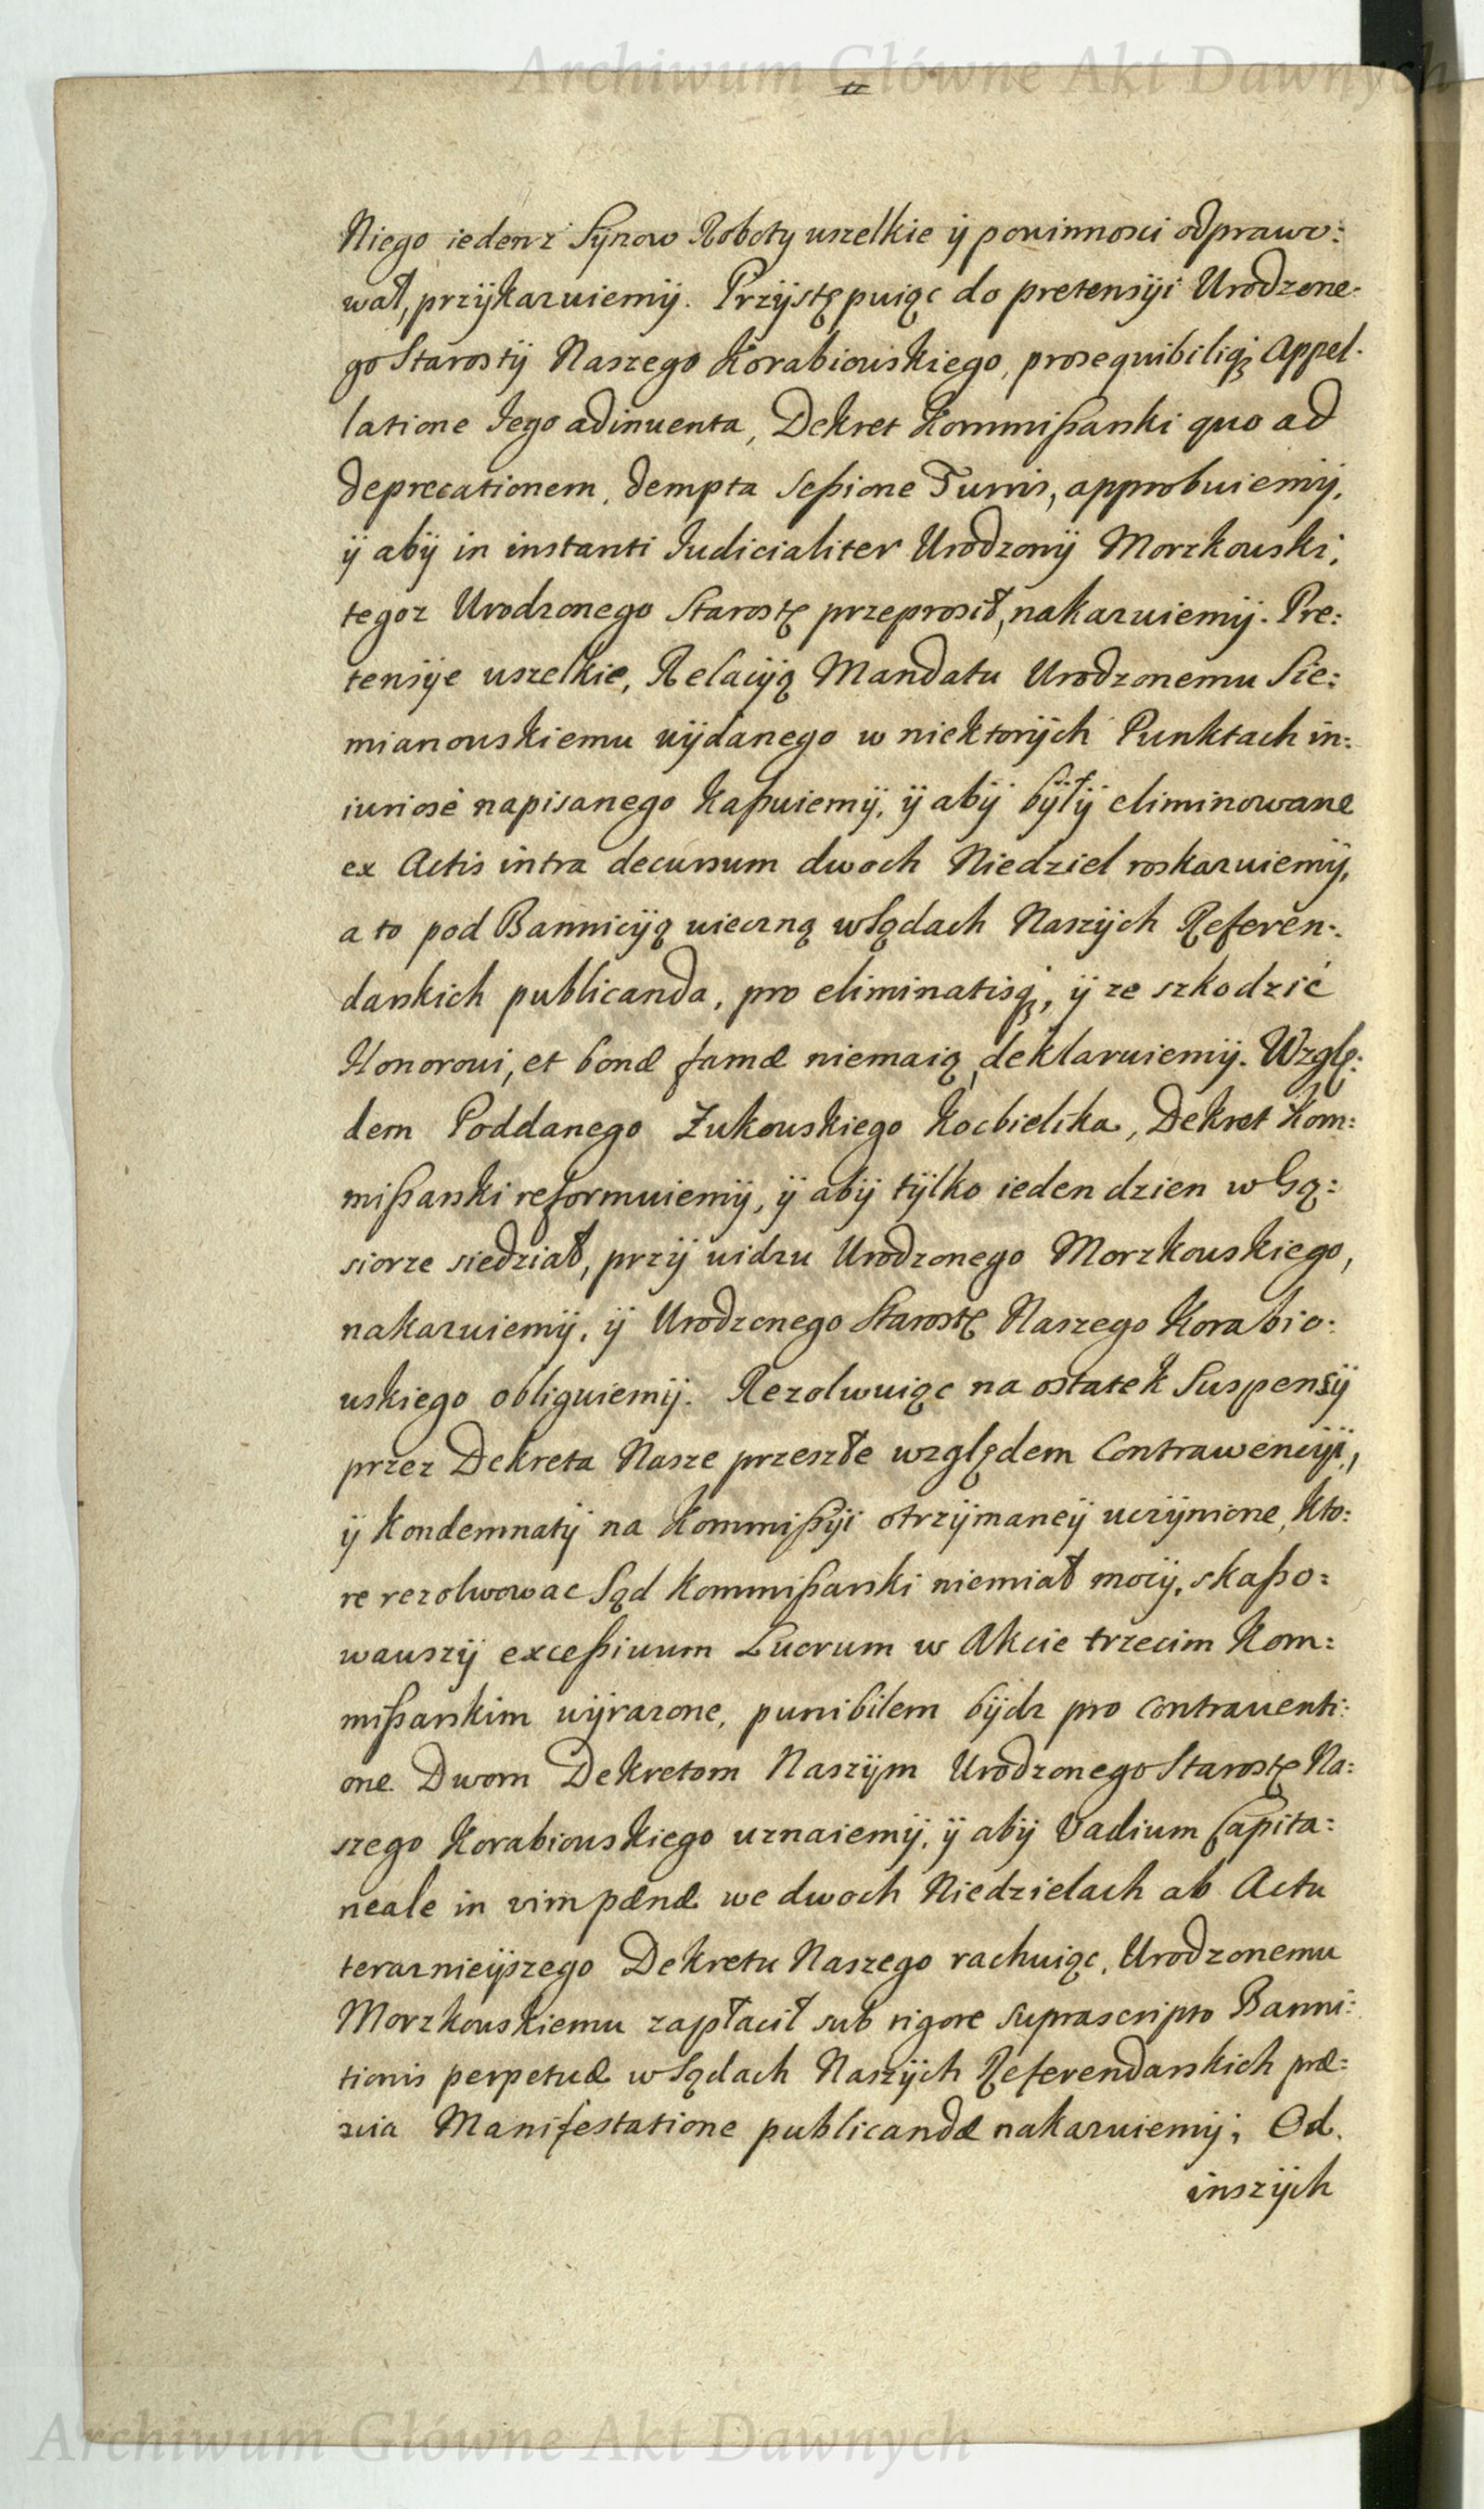 Archiwum Główne Akt Dawnych
Niego ieden z Synow Roboty wszelkie ÿ powinnosci odprawo:
wał, przÿkazuiemÿ. Przÿstępuiąc do pretensÿi Urodzone-
go Starostÿ Naszego Korabiowskiego, prosequibiliq; Appel-
latione Jego adinventa, Dekret Kommißarski quo ad
deprecationem, dempta Seßione Turris, approbuiemÿ,
ÿ abÿ in instanti Judicialiter Urodzonÿ Morzkowski,
tegoz Urodzonego Starostę przeprosił, nakazuiemÿ. Pre:
tensÿe wszelkie, Relacÿą Mandatu Urodzonemu Sie:
mianowskiemu wÿdanego w niektorÿch Punktach in:
iuriosè napisanego kaßuiemÿ, ÿ abÿ bÿłÿ eliminowane
ex Actis intra decursum dwoch Niedziel roskazuiemÿ,
a to pod Bannicÿą wieczną w Sądach Naszÿch Referen-
darskich publicanda, pro eliminatisq;, ÿ ze szkodzić
Honorowi, et bonæ famæ niemaią, deklaruiemÿ. Wzglę:
dem Poddanego Zukowskiego Kocbielika, Dekret Kom:
mißarski reformuiemÿ, ÿ abÿ tÿlko ieden dzien w Gą:
siorze siedział, przÿ widzu Urodzonego Morzkowskiego,
nakazuiemÿ, ÿ Urodzonego Starostę Naszego Korabio:
wskiego obliguiemÿ. Rezolwuiąc na ostatek Suspensÿ
przez Dekreta Nasze przeszłe względem Contrawencÿi,
ÿ kondemnatÿ na Kommißÿi otrzÿmaneÿ uczÿnione, kto:
re rezolwowac Sąd Kommißarski niemiał mocÿ, skaßo:
wawszÿ exceßivum Lucrum w Akcie trzecim Kom:
mißarskim wÿrazone, punibilem bÿdz pro contraventi:
one Dwom Dekretom Naszÿm Urodzonego Starostę Na:
szego Korabiowskiego uznaiemÿ, ÿ abÿ Vadium Capita:
neale in vim pænæ we dwoch Niedzielach ab Actu
teraznieÿszego Dekretu Naszego rachuiąc, Urodzonemu
Morzkowskiemu zapłacił sub rigore suprascripto Banni:
tionis perpetuæ w Sądach Naszÿch Referendarskich præ:
via Manifestatione publicandæ nakazuiemÿ; Od
inszÿch
Archiwum Główne Akt Dawnych